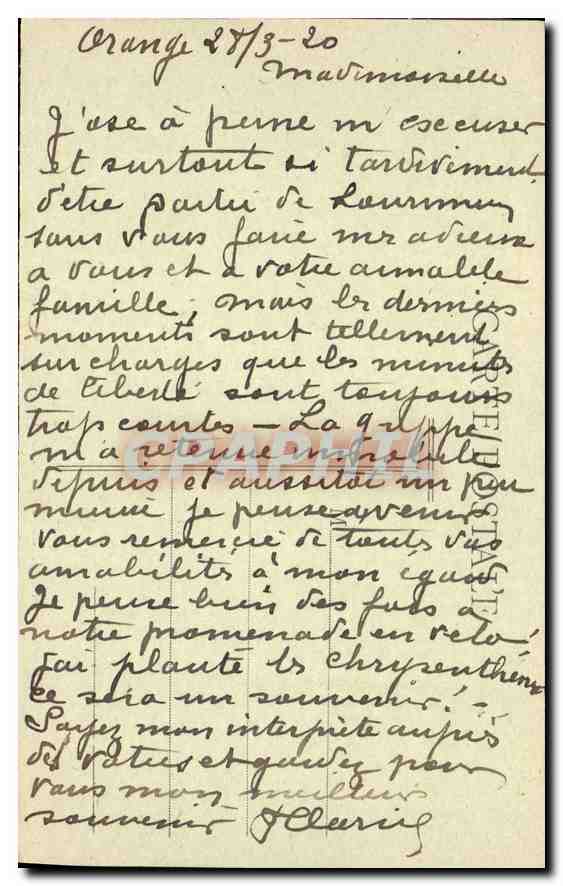 Orange 28/3-20
Mademoiselle
J'ose à peine m'excuser
et surtout si tardivement
d'être partie de
sans vous faire mes adieux
a vous et a votre aimable
famille, mais les derniers
moments sont tellement
surchargés que les minutes
de liberté sont toujours
trop courtes – La grippe
m'a retenue
depuis et aussitôt un peu
mieux je pense a venir
vous remercier de toutes vos
amabilités à mon égard
Je pense bien des fois a
notre promenade en velo!
j'ai planté les chrysenthèmes
ce sera un souvenir! –
Soyez mon interprète auprès
des votres et gardez pour
vous mon meilleur
souvenir
CARTE POSTALE
CPAPHIL